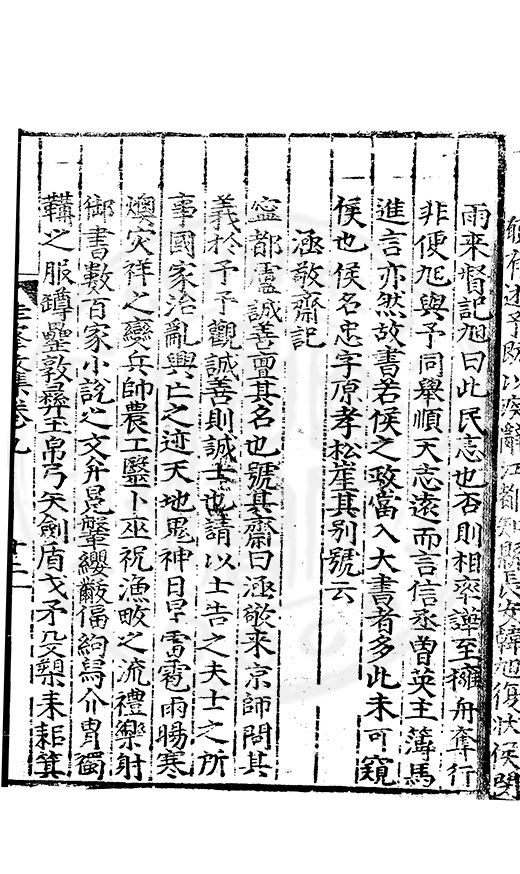 有述予既以疾辭江都知縣長安韓旭復狀侯
雨來督記旭曰此民志也否則相率譁至擁舟奪行
非便旭與予同舉順天志遠而言信丞曹英主簿馬
進言亦然故書若侯之政當入大書者多此未可窺
侯也侯名忠字原孝松崖其别號云
涵敬齋記
寧都盧誠善亶其名也號其齋曰涵敬来京師問其
義於予予觀誠善則誠士也請以士告之夫士之所
事國家治亂興亡之迹天地鬼神日星雷雹雨暘寒
燠灾祥之變兵師農工醫卜巫祝漁畋之流禮樂射
御書數百家小說之文弁冕鞶纓黻偪絇舄介胄韣
韝之服罇罍敦彝玉帛弓矢劍盾戈矛殳槊耒耜箕
文集卷九